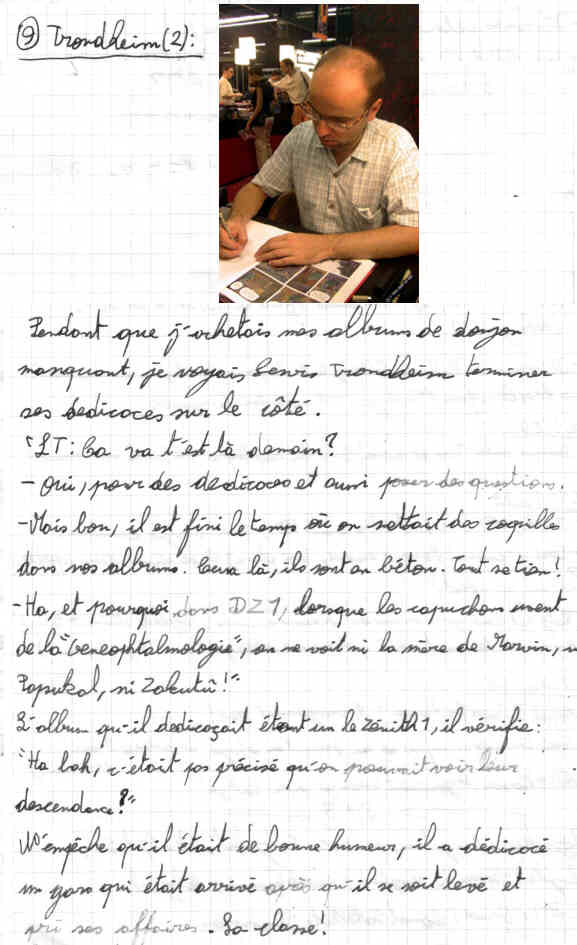 ⑨ Trondheim (2):
Pendant que j'achetais mes albums de donjon
manquant, je voyais Lewis Trondheim terminer
ses dedicaces sur le côté.
"LT: Ca va t'est là demain?
- Oui, pour des dedicaces et aussi poser des questions.
- Mais bon, il est fini le temps où on mettait des coquilles
dans nos albums. Ceux là, ils sont en béton. Tout se tien!
- Ha, et pourquoi, dans DZ1, lorsque les capuchons usent
de la "geneophtalmologie", on ne voit ni la mère de Marvin, ni
Papsukal, ni Zakutû!"
L'album qu'il dedicaçait étant un le Zénith 1, il vérifie:
"Ha bah, c'était pas précisé qu'on pouvait voir leur
descendance?"
N'empêche qu'il était de bonne humeur, il a dédicacé
un gars qui était arrivé après qu'il se soit levé et
pri ses affaires. La classe!